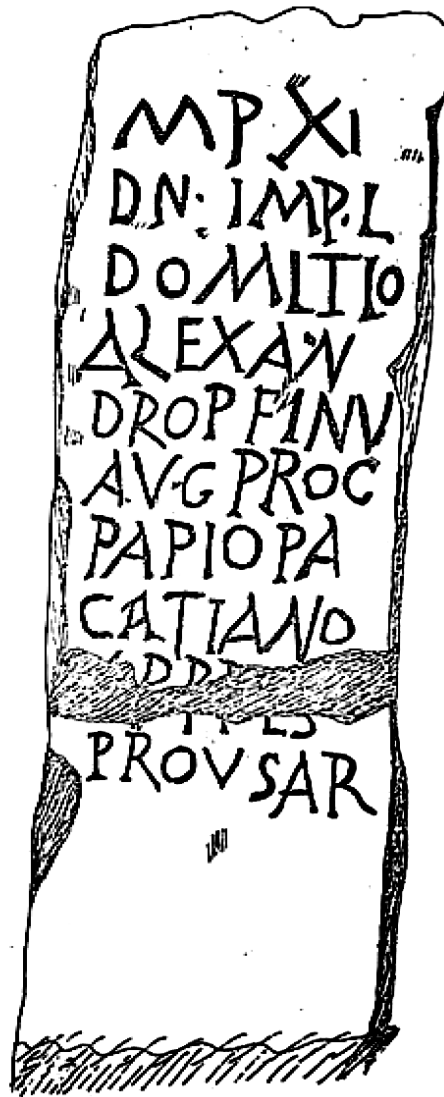 MP XI
DN· IMP·L
DOMITIO
ALEXAN
DRO P F INV
AVG PROC
PAPIO PA
CATIANO
PROV SAR